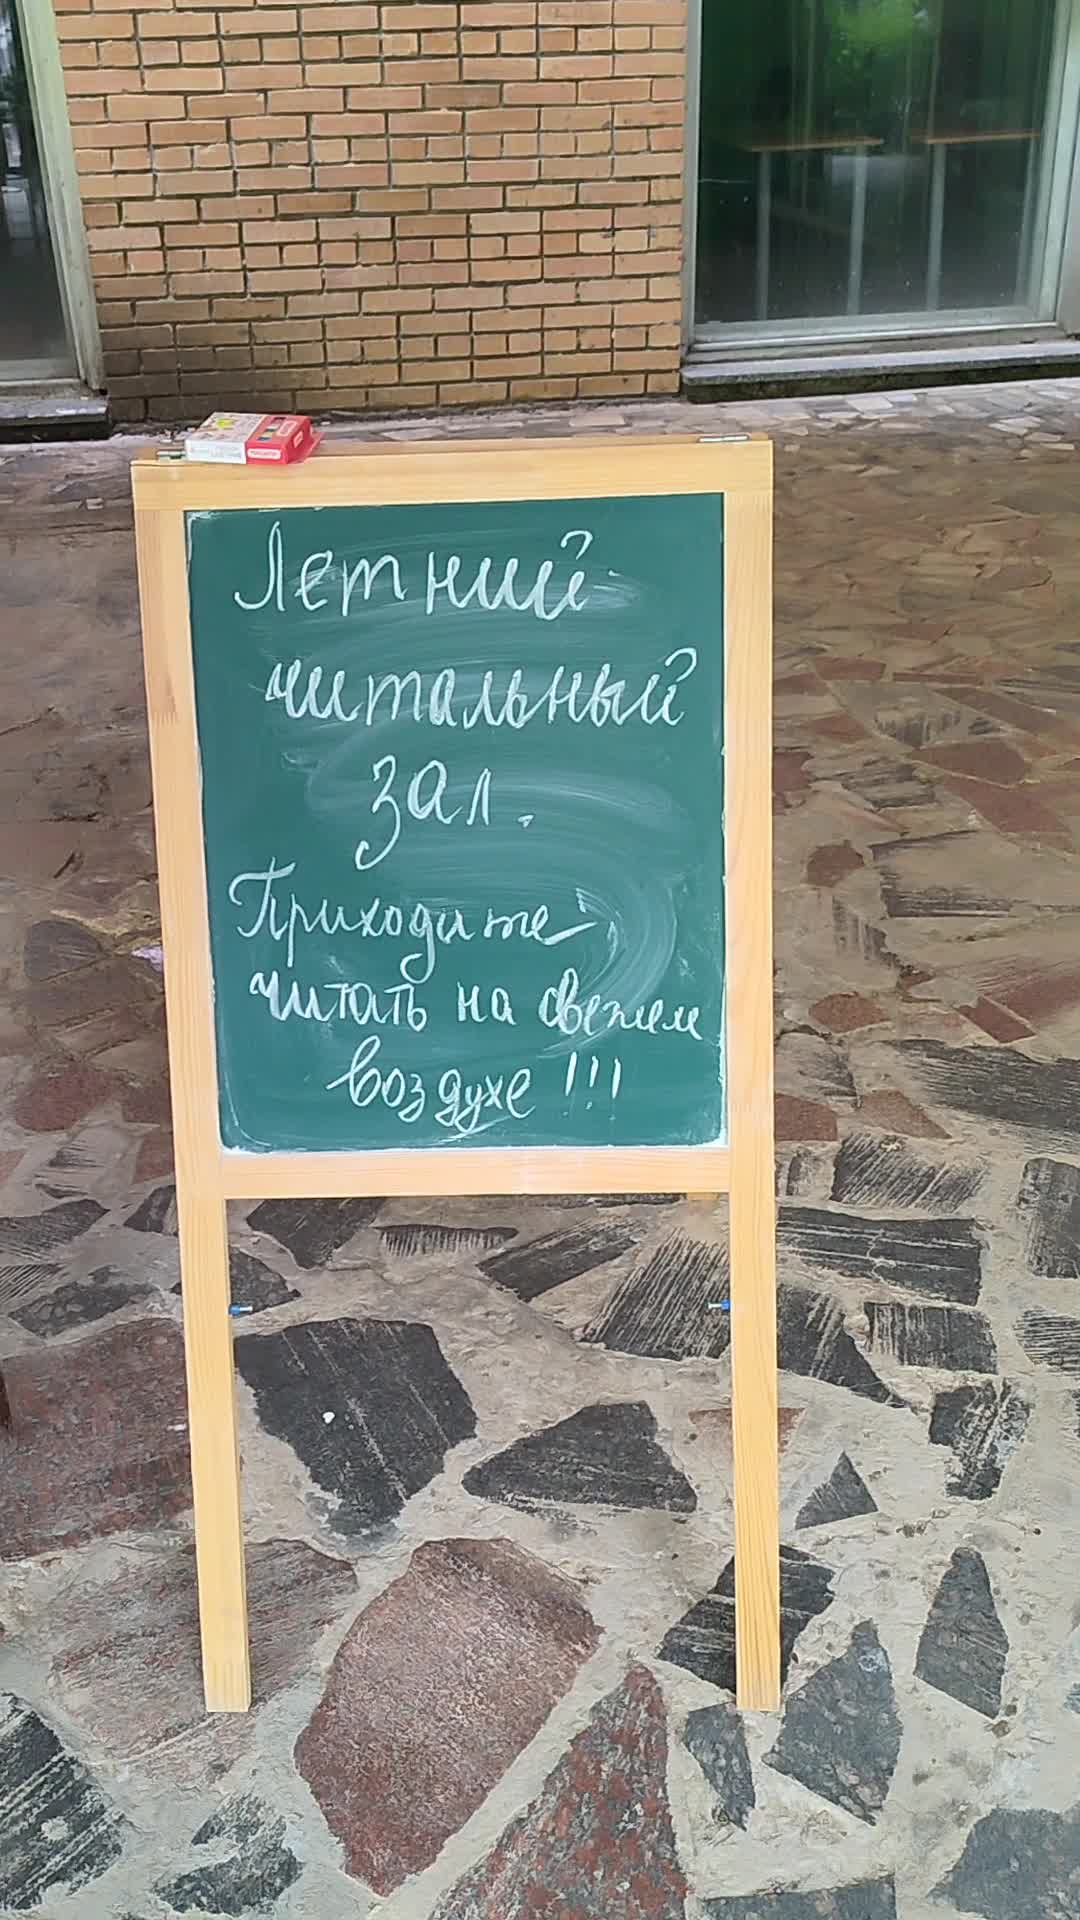 Летний
читальный
зал.
Приходите
читать на свежем
воздухе!!!